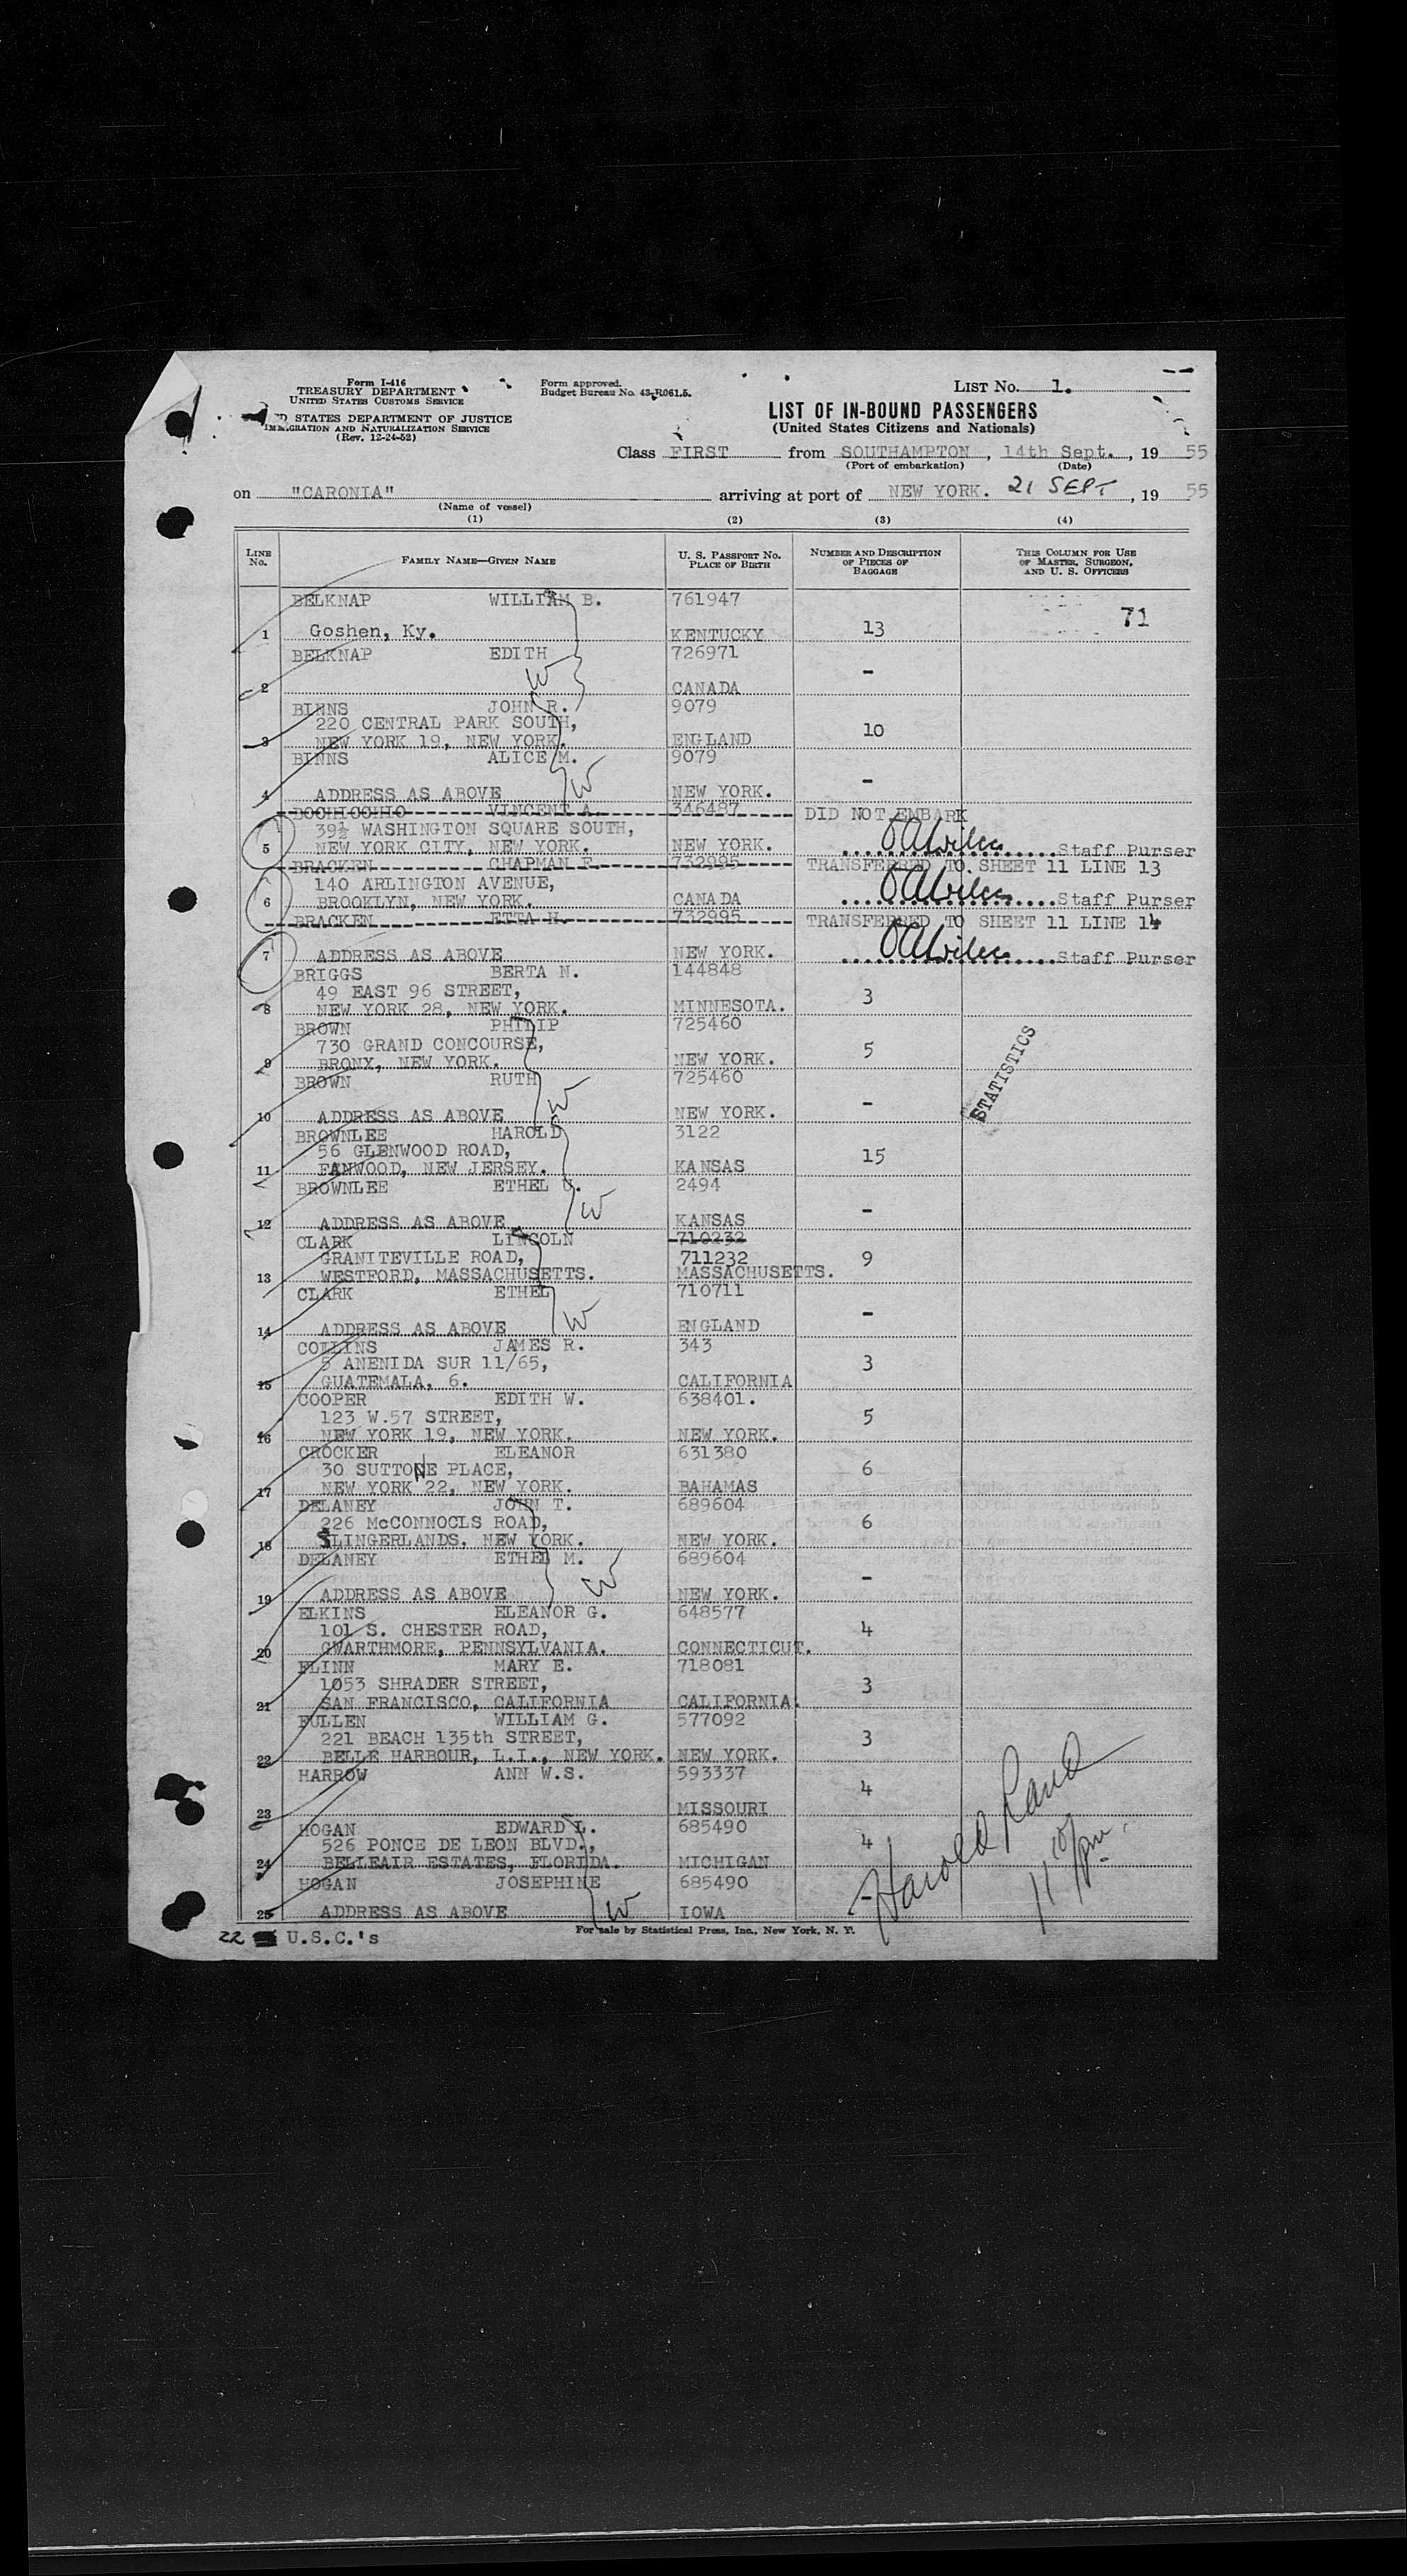 Form I-416
TREASURY DEPARTMENT
UNITED STATES CUSTOMS SERVICE
STATES DEPARTMENT OF JUSTICE
IMMIGRATION AND NATURALIZATION SERVICE
(Rev. 12-24-52)
Form approved.
Budget Bureau No. 43-R061.5.
LIST No. 1.
LIST OF IN-BOUND PASSENGERS
(United States Citizens and Nationals)
Class FIRST from SOUTHAMPTON, 14th Sept., 19 55
(Port of embarkation) (Date)
on "CARONIA" arriving at port of NEW YORK. 21 SEPT, 19 55
(Name of vessel)
(1) (2) (3) (4)
LINE No. FAMILY NAME—GIVEN NAME U. S. PASSPORT NO. PLACE OF BIRTH NUMBER AND DESCRIPTION OF PIECES OF BAGGAGE THIS COLUMN FOR USE OF MASTER, SURGEON, AND U. S. OFFICERS
BELKNAP WILLIAM B. 761947
71
1 Goshen, Ky. KENTUCKY 13
BELKNAP EDITH 726971
2 CANADA -
W
BINNS JOHN R. 9079
220 CENTRAL PARK SOUTH,
3 NEW YORK 19, NEW YORK. ENGLAND 10
BINNS ALICE M. 9079
4 ADDRESS AS ABOVE W NEW YORK. -
BOCHICCHIO VINCENT A. 346487 DID NOT EMBARK
39½ WASHINGTON SQUARE SOUTH,
5 NEW YORK CITY, NEW YORK. NEW YORK. Staff Purser
BRACKEN CHAPMAN F. 732995 TRANSFERRED TO SHEET 11 LINE 13
140 ARLINGTON AVENUE,
6 BROOKLYN, NEW YORK. CANADA Staff Purser
BRACKEN ETTA H. 732995 TRANSFERRED TO SHEET 11 LINE 14
7 ADDRESS AS ABOVE NEW YORK. Staff Purser
BRIGGS BERTA N. 144848
49 EAST 96 STREET,
8 NEW YORK 28, NEW YORK. MINNESOTA. 3
BROWN PHILIP 725460
730 GRAND CONCOURSE,
9 BRONX, NEW YORK. NEW YORK. 5
STATISTICS
BROWN RUTH 725460
10 ADDRESS AS ABOVE W NEW YORK. -
BROWNLEE HAROLD 3122
56 GLENWOOD ROAD,
11 FANWOOD, NEW JERSEY. KANSAS 15
BROWNLEE ETHEL U. 2494
12 ADDRESS AS ABOVE W KANSAS -
CLARK LINCOLN 710232
GRANITEVILLE ROAD, 711232
13 WESTFORD, MASSACHUSETTS. MASSACHUSETTS. 9
CLARK ETHEL 710711
14 ADDRESS AS ABOVE W ENGLAND -
COLLINS JAMES R. 343
5 ANENIDA SUR 11/65,
15 GUATEMALA, 6. CALIFORNIA 3
COOPER EDITH W. 638401.
123 W.57 STREET,
16 NEW YORK 19, NEW YORK. NEW YORK. 5
CROCKER ELEANOR 631380
30 SUTTONE PLACE,
17 NEW YORK 22, NEW YORK. BAHAMAS 6
DELANEY JOHN T. 689604
226 McCONNOCLS ROAD,
18 SLINGERLANDS, NEW YORK. NEW YORK. 6
DELANEY ETHEL M. 689604
19 ADDRESS AS ABOVE W NEW YORK. -
ELKINS ELEANOR G. 648577
101 S. CHESTER ROAD,
20 GWARTHMORE, PENNSYLVANIA. CONNECTICUT. 4
FLINN MARY E. 718081
1053 SHRADER STREET,
21 SAN FRANCISCO, CALIFORNIA CALIFORNIA. 3
FULLEN WILLIAM G. 577092
221 BEACH 135th STREET,
22 BELLE HARBOUR, L.I., NEW YORK. NEW YORK. 3
HARROW ANN W.S. 593337
23 MISSOURI 4
HOGAN EDWARD L. 685490
526 PONCE DE LEON BLVD.,
24 BELLEAIR ESTATES, FLORIDA. MICHIGAN 4
HOGAN JOSEPHINE 685490
25 ADDRESS AS ABOVE W IOWA
Harold
22 U.S.C.'s
For sale by Statistical Press, Inc., New York, N. Y.